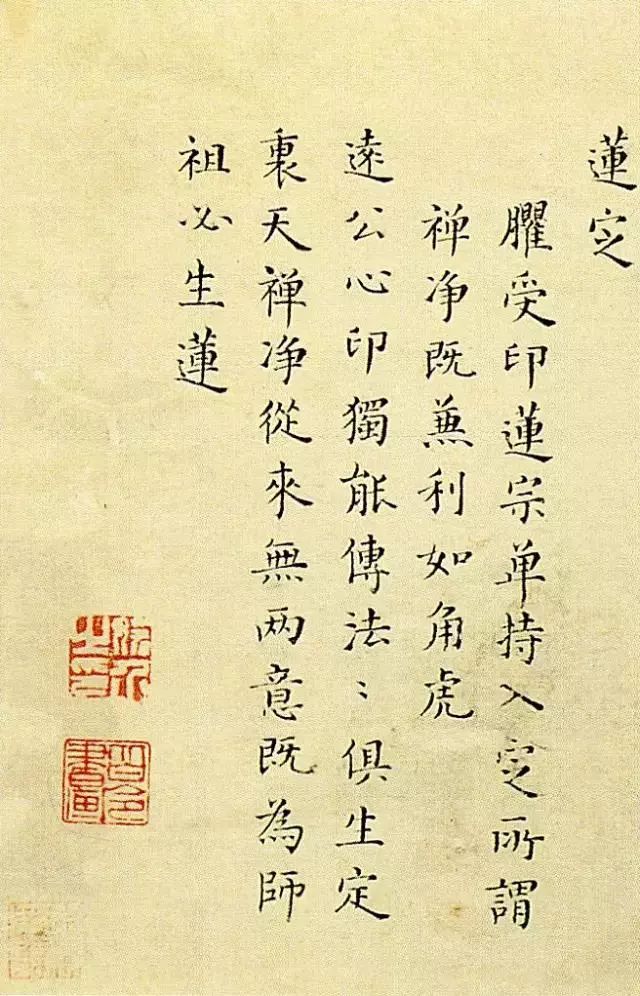 蓮㝎
臞受印蓮宗单持入㝎所謂
禅净既兼利如角虎
遠公心印獨能傳法〻俱生定
裏天禅净從來無两意既為師
祖必生蓮